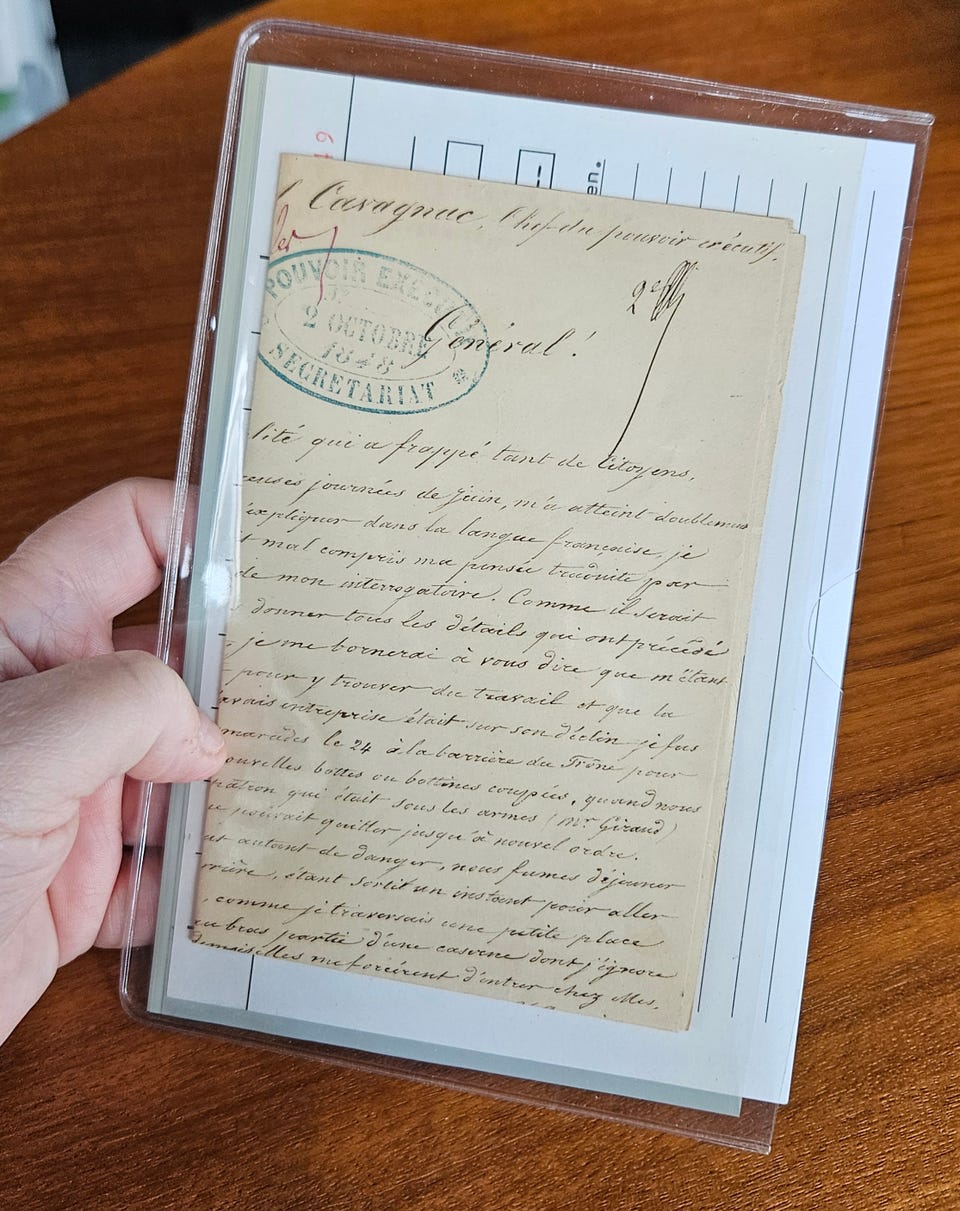 49
en.
Cavagnac, Chef du pouvoir exécutif.
POUVOIR EXECUTIF
2 OCTOBRE
1848
SECRETARIAT
Général!
lité qui a frappé tant de Citoyens,
euses journées de juin, m'a atteint doublement
expliquer dans la langue française, je
t mal compris ma pensée traduite par
de mon interrogatoire. Comme il serait
donner tous les détails qui ont précédé
, je me bornerai à vous dire que m'étant
pour y trouver du travail et que la
avais entreprise était sur son déclin je fus
marades le 24 à la barrière du Trône pour
ouvelles bottes ou bottines coupées, quand nous
patron qui était sous les armes (Mr Giraud)
e pouvait quitter jusqu'à nouvel ordre.
nt autant de danger, nous fumes déjeuner
rrière, étant sortit un instant pour aller
, comme je traversais une petite place
au bras partie d'une caserne dont j'ignore
demoiselles me forcèrent d'entrer chez Mes.